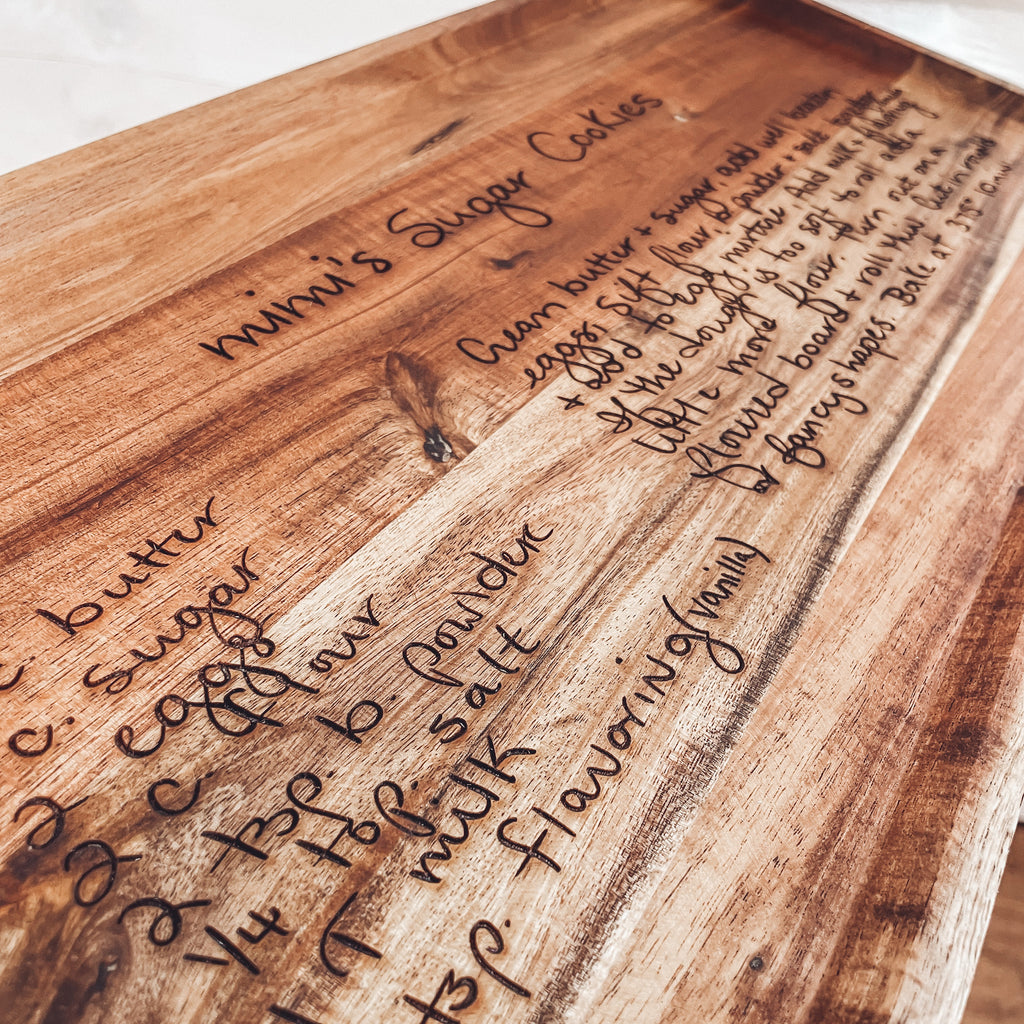 mimi's Sugar Cookies
c. butter
c. sugar
2 eggs
2 c. flour
2 tsp. b. powder
1/4 tsp. salt
T milk
tsp. flavoring (vanilla)
Cream butter + sugar, add well beaten
eggs. Sift flour, b. powder + salt together
+ add to egg mixture. Add milk + flavoring
If the dough is too soft to roll add a
little more flour. Turn out on a
floured board + roll thin. Cut in rounds
or fancy shapes. Bake at 375° 10 min